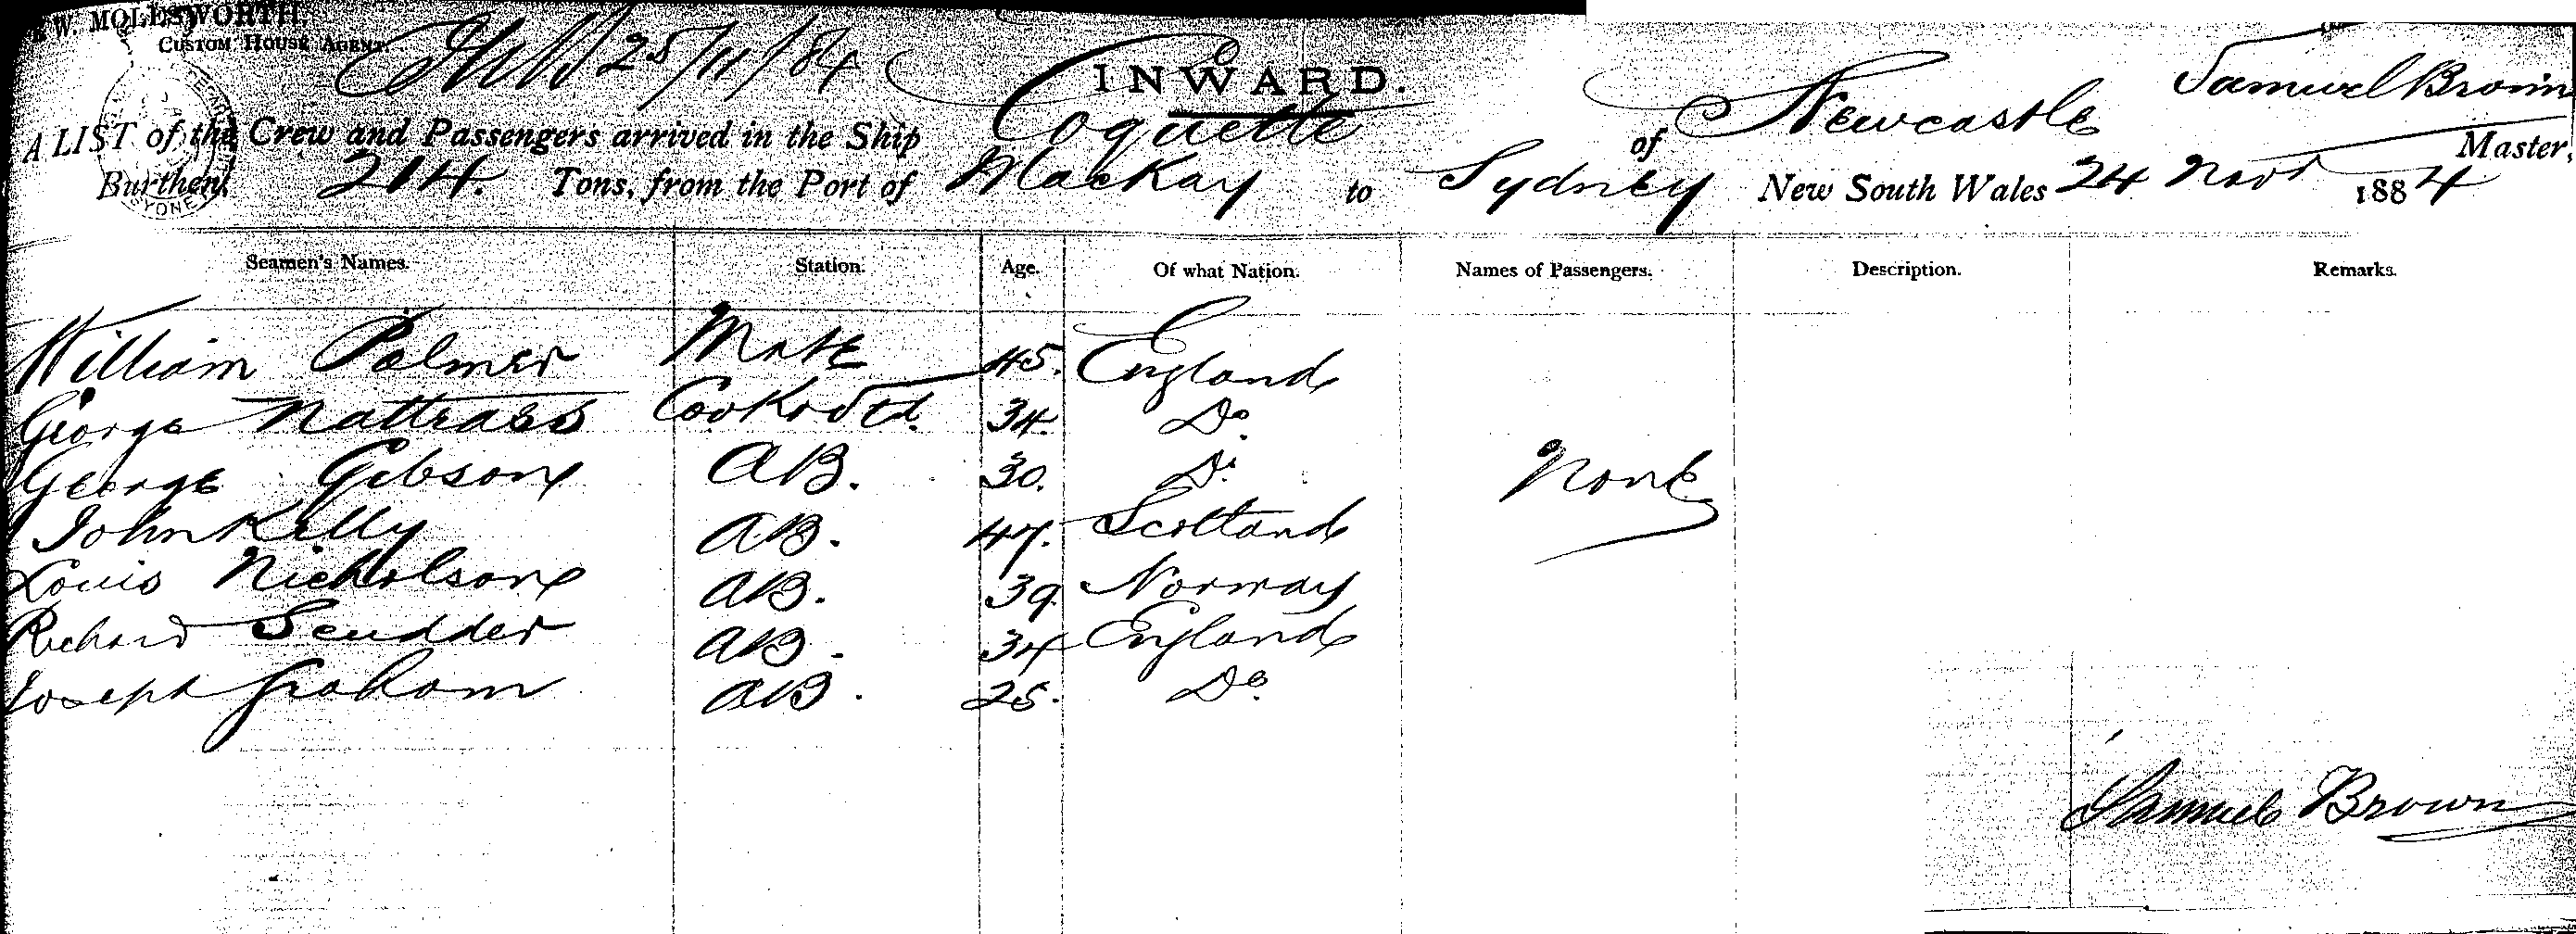 W. MOLESWORTH,
CUSTOM HOUSE AGENT.
25/11/84
INWARD.
A LIST of the Crew and Passengers arrived in the Ship Coquette of Newcastle Samuel Brown Master,
Burthen 214. Tons, from the Port of MacKay to Sydney New South Wales 24 Novr 1884
Seamen's Names. Station. Age. Of what Nation. Names of Passengers. Description. Remarks.
William Palmer Mate 45. England
George Nattrass Cook & Std. 34. Do.
George Gibson AB. 30. Do. None
John Kelly AB. 47. Scotland
Louis Nicholson AB. 39. Norway
Richard Scudder AB. 34 England
Joseph Graham AB. 25. Do.
Samuel Brown